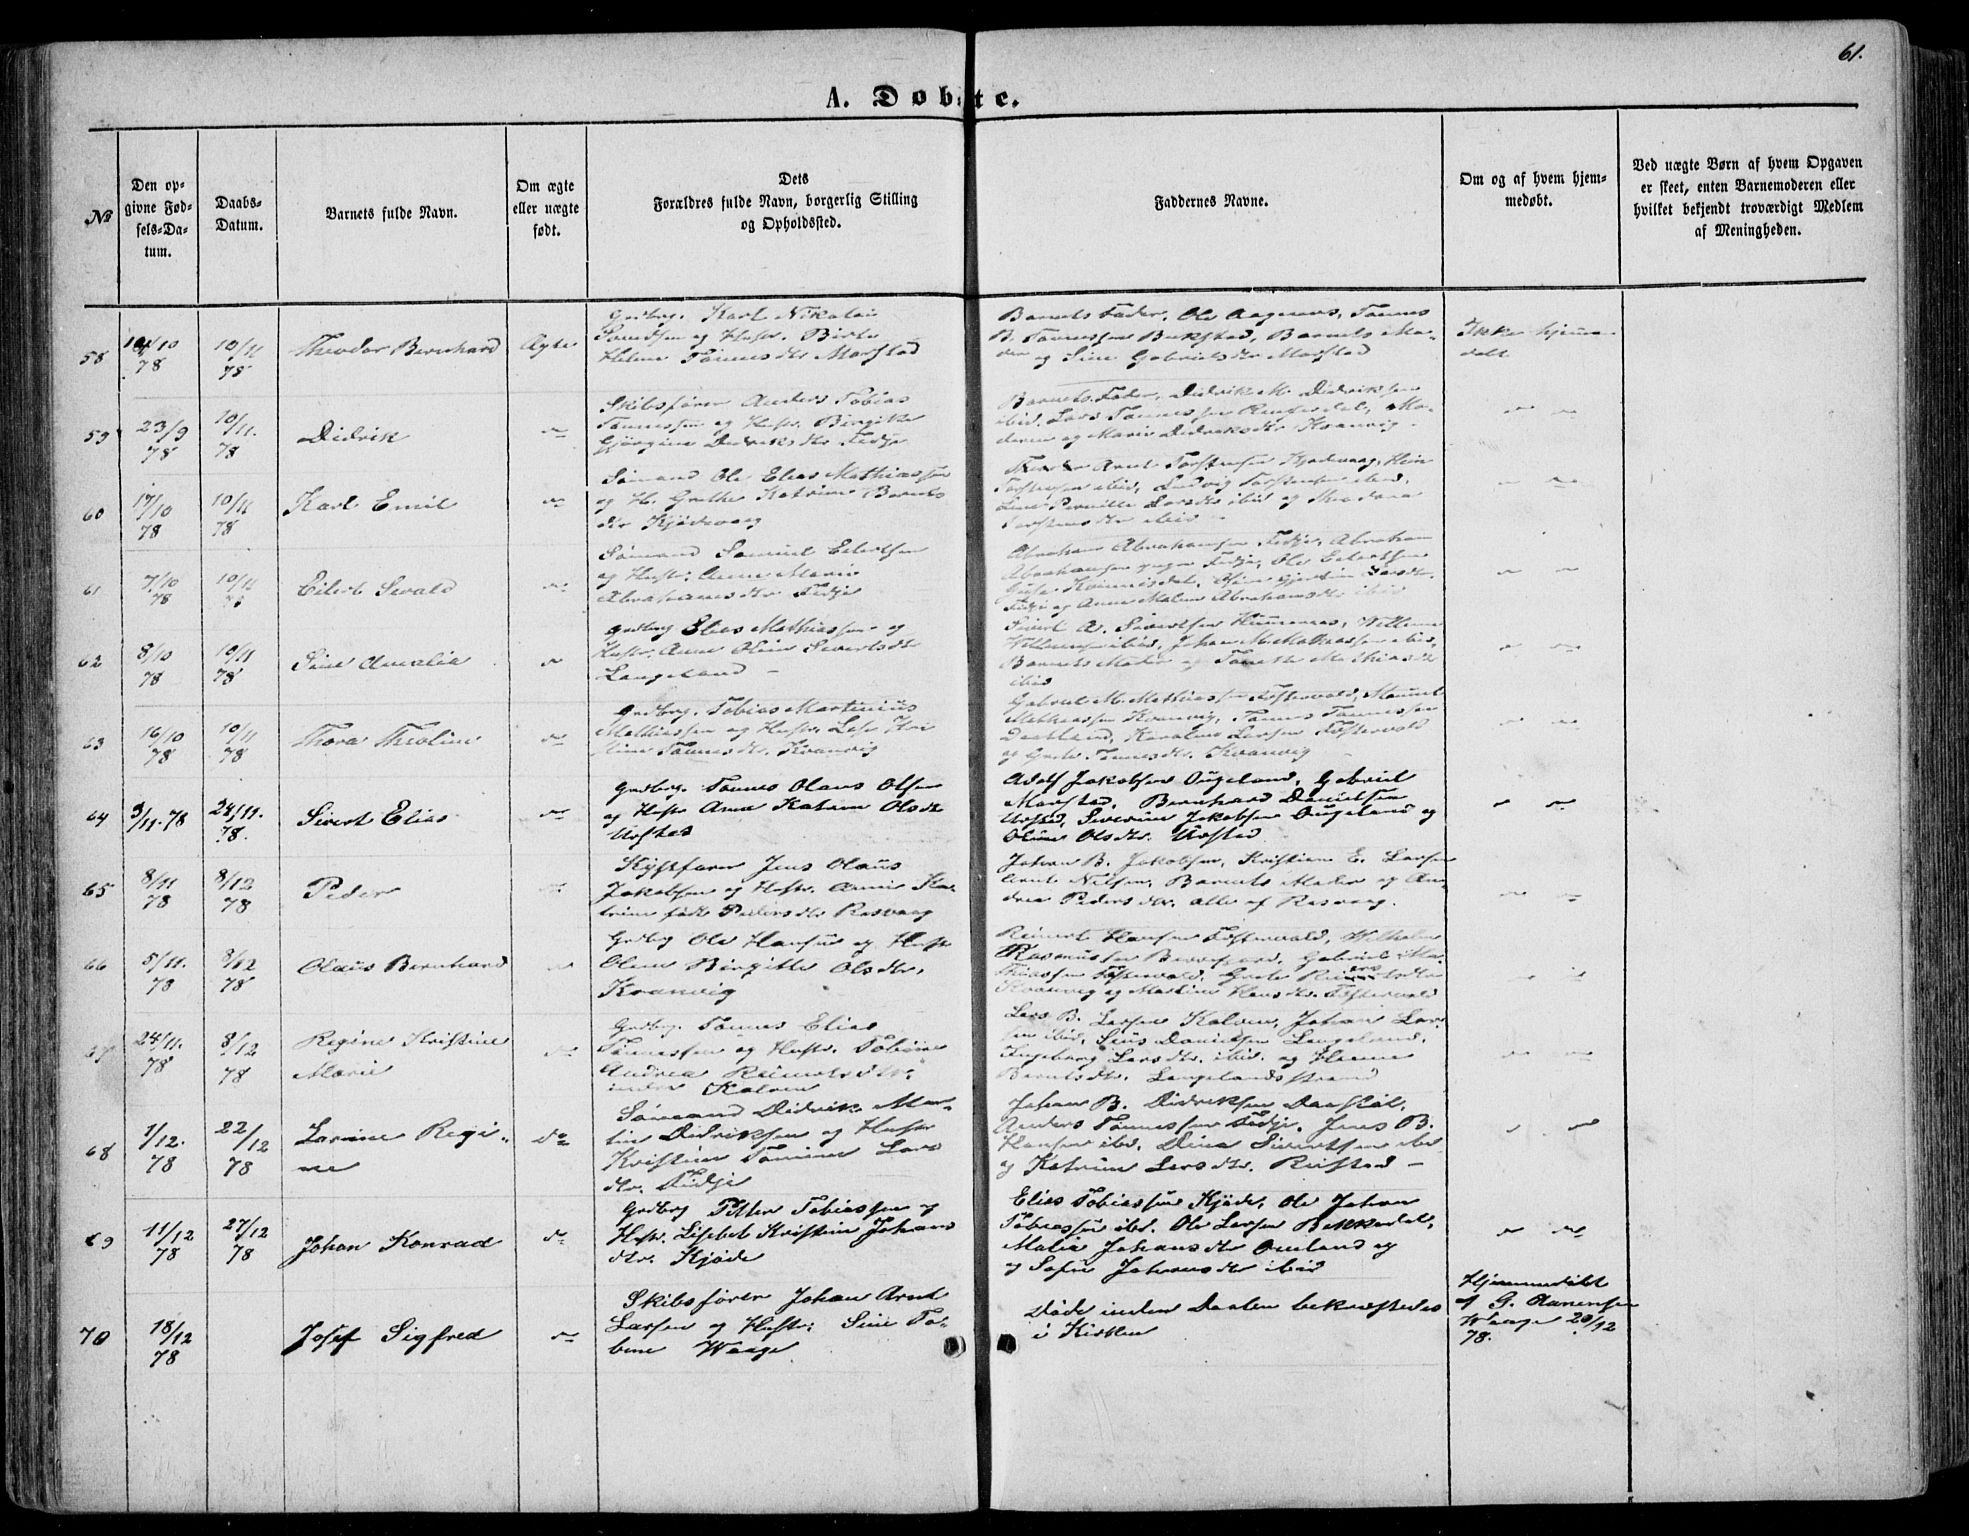 61.
A. Døbte.
No
Den op-
givne Fød-
sels-Da-
tum.
Daabs-
Datum.
Barnets fulde Navn.
Om ægte
eller uægte
født.
Dets
Forældres fulde Navn, borgerlig Stilling
og Opholdssted.
Faddernes Navne.
Om og af hvem hjem-
medøbt.
Ved uægte Børn af hvem Opgaven
er skeet, enten Barnemoderen eller
hvilket bekjendt troværdigt Medlem
af Meningheden.
58
10/10
78
10/11
78
Theodor Bernhard
Ægte
Gmdbrg. Karl Nikolai
og Hustr. Birte
Helene Tønnesdtr Morstad
Barnets Fader, Ole Aagenes, Tønnes
B. Tønnessen Bukstad, Barnets Mo-
der og Sine Gabrielsdtr Morstad
Ikke hjemme-
døbt
59
23/9
78
10/11.
78
Didrik
do
Skibsfører Anders Tobias
Tønnessen og Hustr. Birgitte
Gjorgine Didriksdtr Fidje
Barnets Fader, Didrik M. Didriksen
ibid, Lars Tønnessen Ringsdal, Mo-
deren og Marie Didriksdtr Kvanvig
60
17/10
78
10/11
78
Karl Emil
do
Sømand Ole Elias Mathiassen
og H. Grethe Katrine Barnts
dtr Kjødevaag
Arnt Torstensen Kjødevaag, Hein
Torstensen ibid, Ludvig Torstensen ibid,
Lene Pernille Larsdtr ibid og
Torstensdtr ibid
61
7/10
78
10/11
78
Eilert Sevald
do
Sømand Samuel Eilertsen
og Hustr. Anne Marie
Abrahamsdtr Fidje
Abraham Abrahamsen Fidje, Abraham
Abrahamsen yngre Fidje, Ole
Larsdtr.
Fidje og Anne Malene Abrahamsdtr ibid
62
8/10
78
10/11
78
Sine Amalie
do
Gmdbrg Elias Mathiassen og
Hustr. Anne Oline Sivertsdtr
Langeland
Sivert A. Sivertsen Hummernes, Willum
Willumsen ibid, Johan M. Mathiassen ibid,
Barnets Moder og Mathiasdtr
ibid
63
16/10
78
10/11
78
Thora Theoline
do
Gmdbrg. Tobias Martinius
Mathiassen og Hustr.
Tønnesdtr. Kvanvig
Gabriel M. Mathiassen Fostervold,
Mathiassen Kvanvig, Tønnes Tønnessen
Karoline Larsen Fostervold
og Grete Tønnesdtr. Kvanvig
64
3/11. 78
24/11.
78.
Sivert Elias
do
Gmdbrg. Tønnes Olaus Olsen
og Hustr Anne Katrine Olsdtr
Urstad
Adolf Jakobsen Ougeland, Gabriel
Morstad, Bernhard Danielsen
Urstad, Severine Jakobsen Ougeland og
Oline Olsdtr. Urstad
65
8/11
78
8/12
78
Peder
do
Kystfarer Jens Olaus
Jakobsen og Hustr. Annie Ka-
trine født Pedersdtr Rasvaag
Johan B. Jakobsen, Kristian E. Larsen
Arnt Nilsen, Barnets Moder og An-
drea Pedersdtr. alle af Rasvaag.
66
5/11.
78
8/12
78
Olaus Bernhard
do
Gmdbrg Ole Hansen og Hustr
Olene Birgitte Olsdtr.
Kvanvig
Reinert Hansen Fostervold, Wilhelm
Rasmussen Gabriel Ma-
thiassen Fostervold. Grete
Kvanvig og Martine Hansdtr. Fostervold
67
24/11.
78
8/12
78
Regine Kristine
Marie
do
Gmdbrg. Tønnes Elias
Tønnessen og Hustr. Tobine
Andrea Reinertsdtr.
Kalven
Lars B. Larsen Kalven, Johan Lar-
sen ibid, Danielsen Langeland,
Ingeborg Larsdtr. ibid. og Hanne
Berntsdtr. Langelandsstrand
68
1/12.
78
22/12
78
Lovine Regi-
ne
do
Sømand Didrik Mar-
tin Didriksen og Hustr
Kristine Tomine Lars
dtr. Fidje
Johan B. Didriksen
Anders Tønnessen Fidje, Jens B.
Hansen ibid, Dina Sivertsen ibid
og Katrine Larsdtr. Reistad
69
11/12
78
27/12
78
Johan Konrad
do
Gmdbrg Petter Tobiassen og
Hustr. Lisebet Kristine Johans
dtr. Kjøde
Elias Tobiassen Kjøde, Ole Johan
Tobiassen ibd. Ole Larsen Bekkedal,
Malie Johansdtr Omland og
og Sofie Johansdtr ibid
70
18/12
78
Josef Sigfred
do
Skibsfører Johan Arnt
Larsen og Hustr: Sine To-
bine Waage
Døde inden Daaben bekræftedes
i Kirken
Hjemmedøbt
af G. Aanensen
Waage 20/12
78.